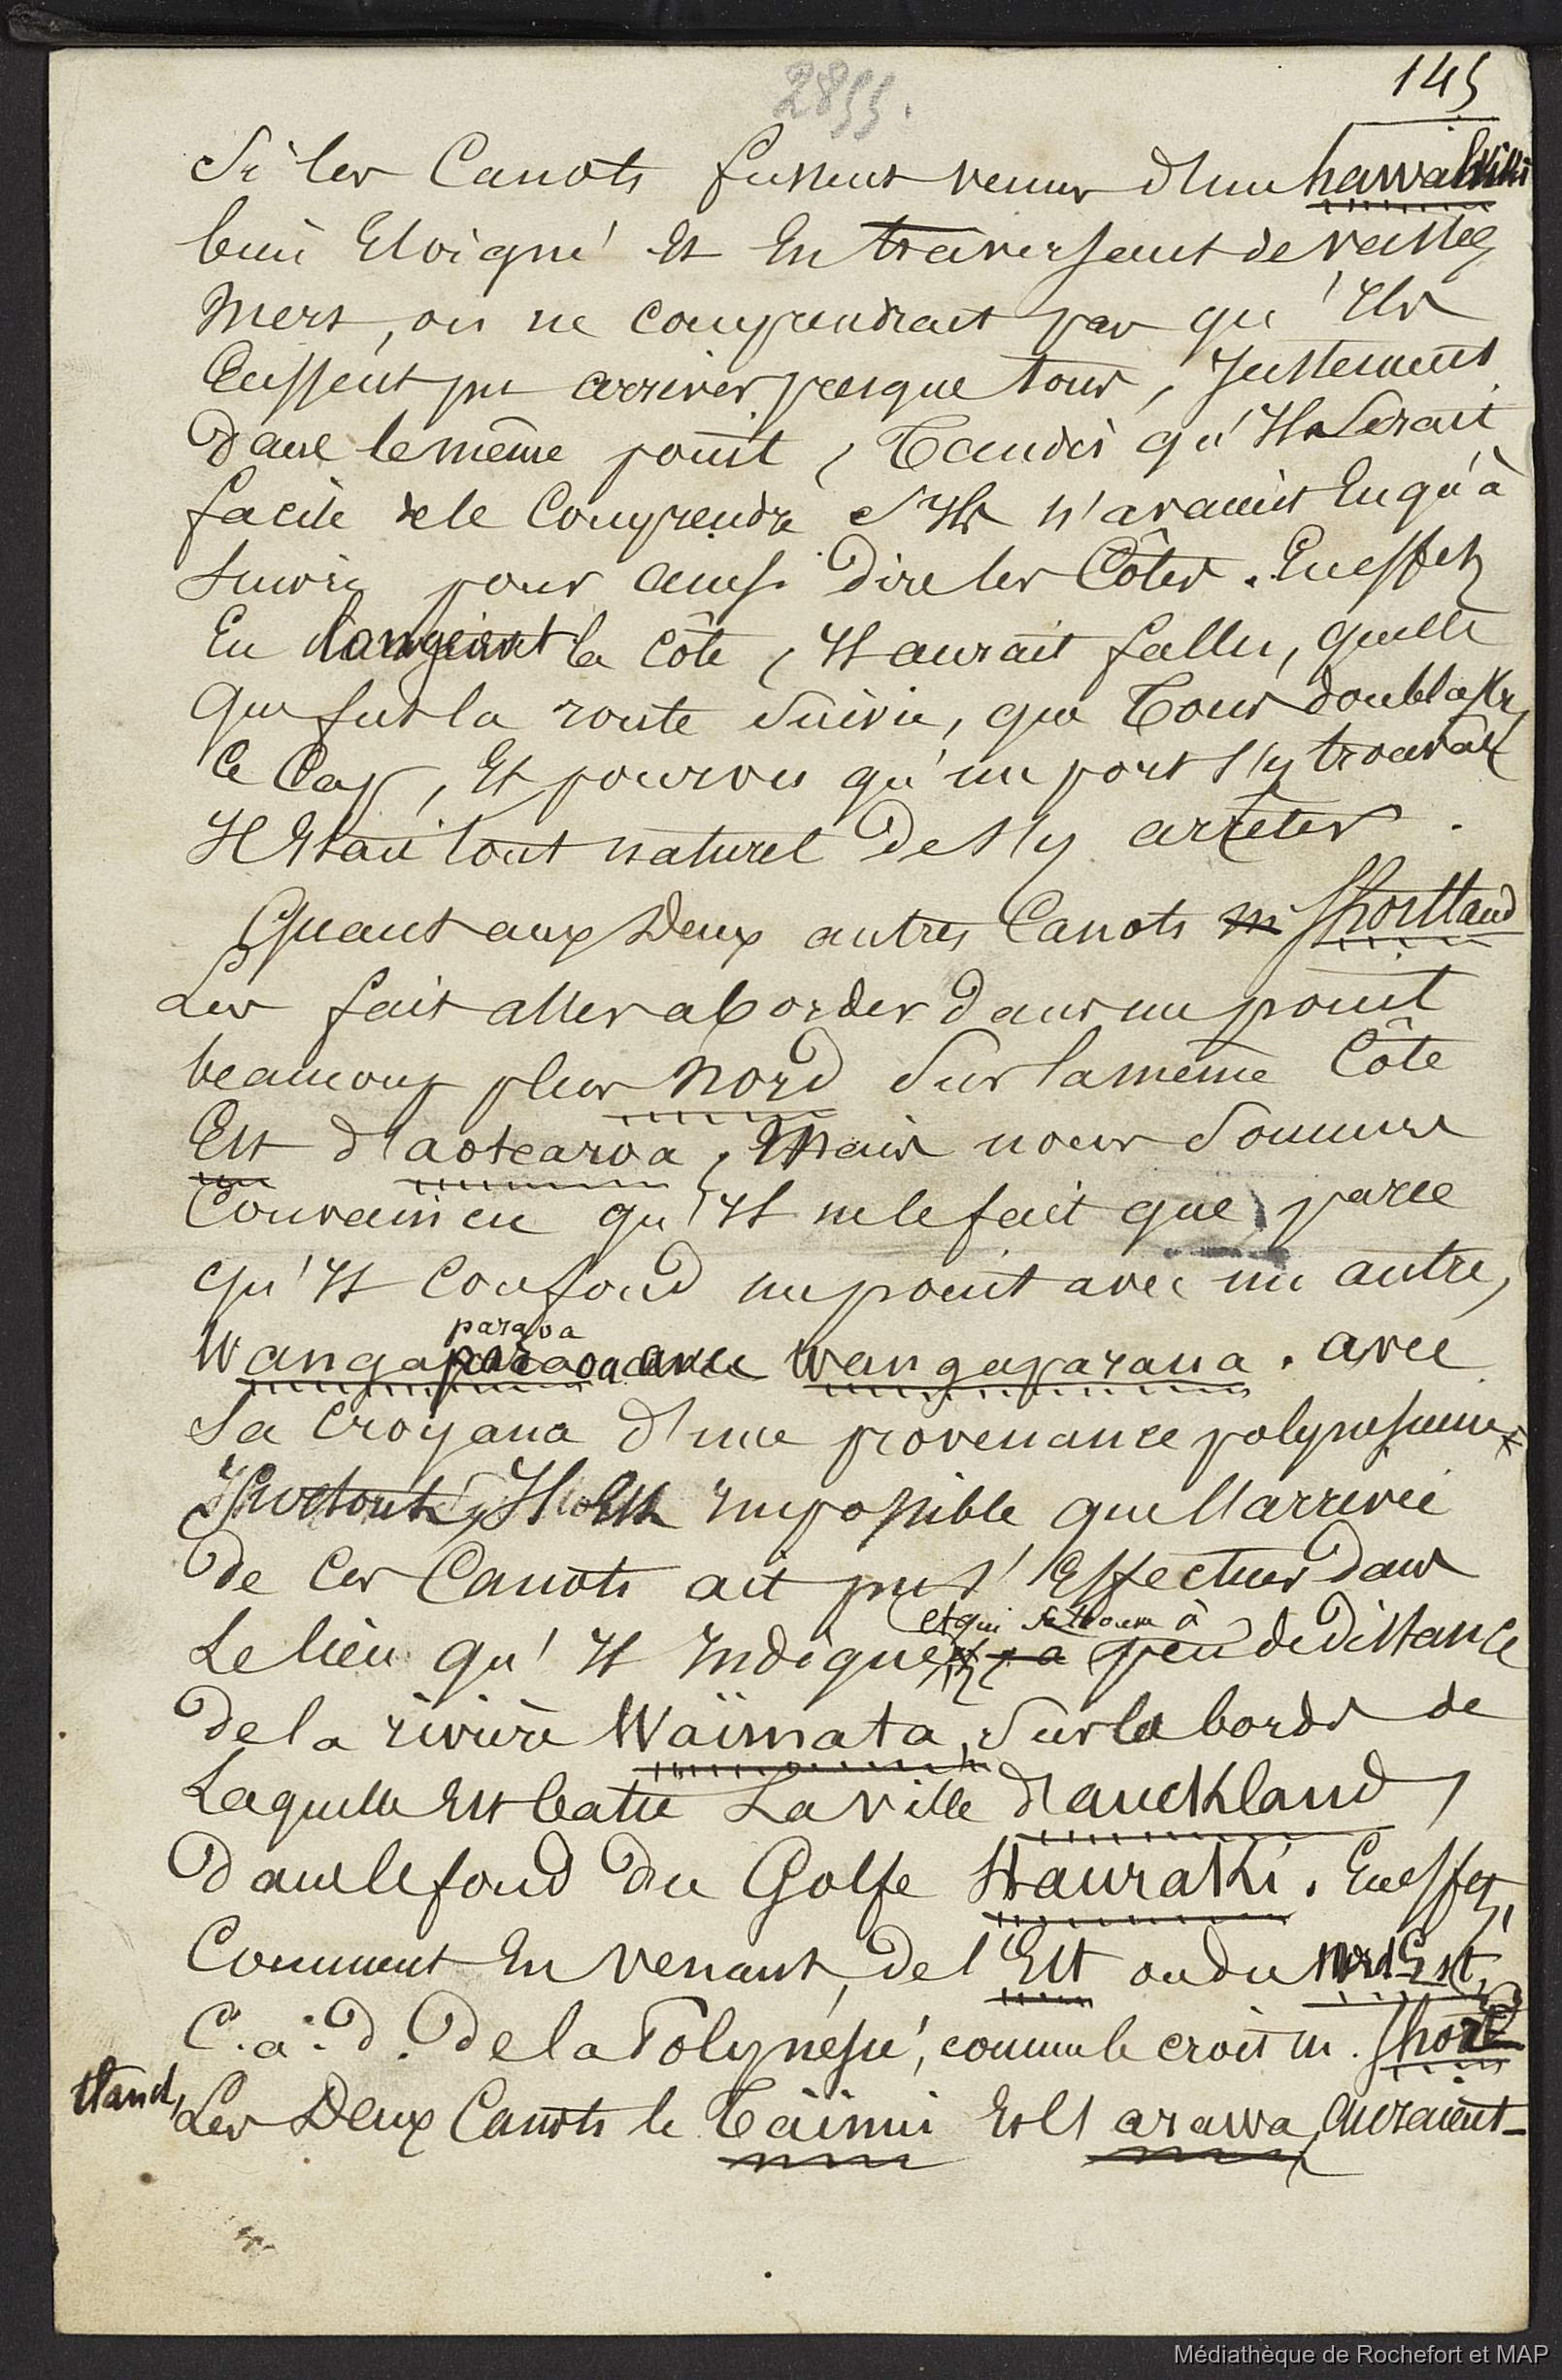 145
2855.
Si les Canots fussent venus d'un hawahiki
bien Eloigné et En traversant de vastes
Mers, on ne comprendrait pas qu'Ils
Eussent pu arriver presque tous, Justement
Dans le même point, Tandis qu'Il Serait
facile de le Comprendre S'Ils n'avaient Eu qu'à
Suivre pour ainsi Dire les Côtes. En effet
En longeant la Côte, Il aurait fallu, quelle
Que fut la route Suivie, que Tous doublassent
Ce Cap, Et pourvu qu'un port s'y trouvât
Il Etait tout naturel De s'y arrêter.
Quant aux Deux autres Canots M Shortland
Les fait aller aborder Dans un point
beaucoup plus Nord Sur la même Côte
Est d'aotearoa, Mais nous Sommes
Convaincu qu'Il ne le fait que parce
qu'Il Confond un point avec un autre,
paraoa
Wangaparaoa avec Wangaparaua. avec
Sa Croyance d'une provenance polynésienne
Il Est Impossible que l'arrivée
De Ces Canots ait pu s'Effectuer Dans
et qui se trouve à
Le lieu qu'Il Indique peu de distance
De la rivière Waïmata, Sur les bords de
Laquelle Est batie La Ville d'auckland,
Dans le fond Du Golfe Hauraki. En effet,
Comment En venant, de l'Est ou du Nord Est,
C.a.D. De la Polynésie, comme le croit m. Short
tland,
Les Deux Canots le Taïnui Et l'arawa, auraient-
Médiathèque de Rochefort et MAP